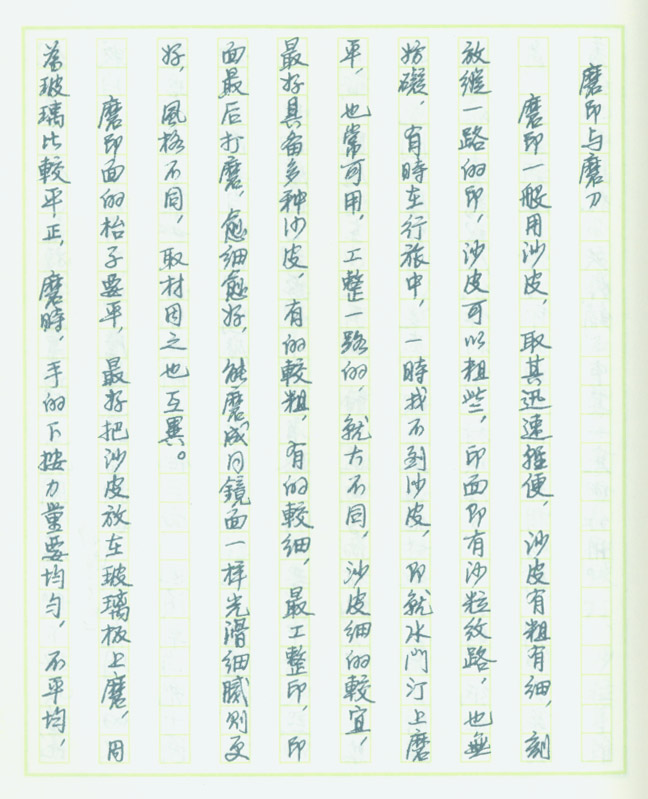 磨印与磨刀
磨印一般用沙皮，取其迅速輕便，沙皮有粗有细，刻
放纵一路的印，沙皮可以粗些，印面即有沙粒纹路，也無
妨礙，有時在行旅中，一時找不到沙皮，即就水門汀上磨
平，也常可用，工整一路的，就大不同，沙皮细的較宜，
最好具备多种沙皮，有的較粗，有的較细，最工整印，印
面最后打磨，愈细愈好，能磨成同鏡面一样光滑细腻则更
好，風格不同，取材因之也互異。
磨印面的枱子要平，最好把沙皮放在玻璃板上磨，因
为玻璃比較平正，磨時，手的下按力量要均匀，不平均，